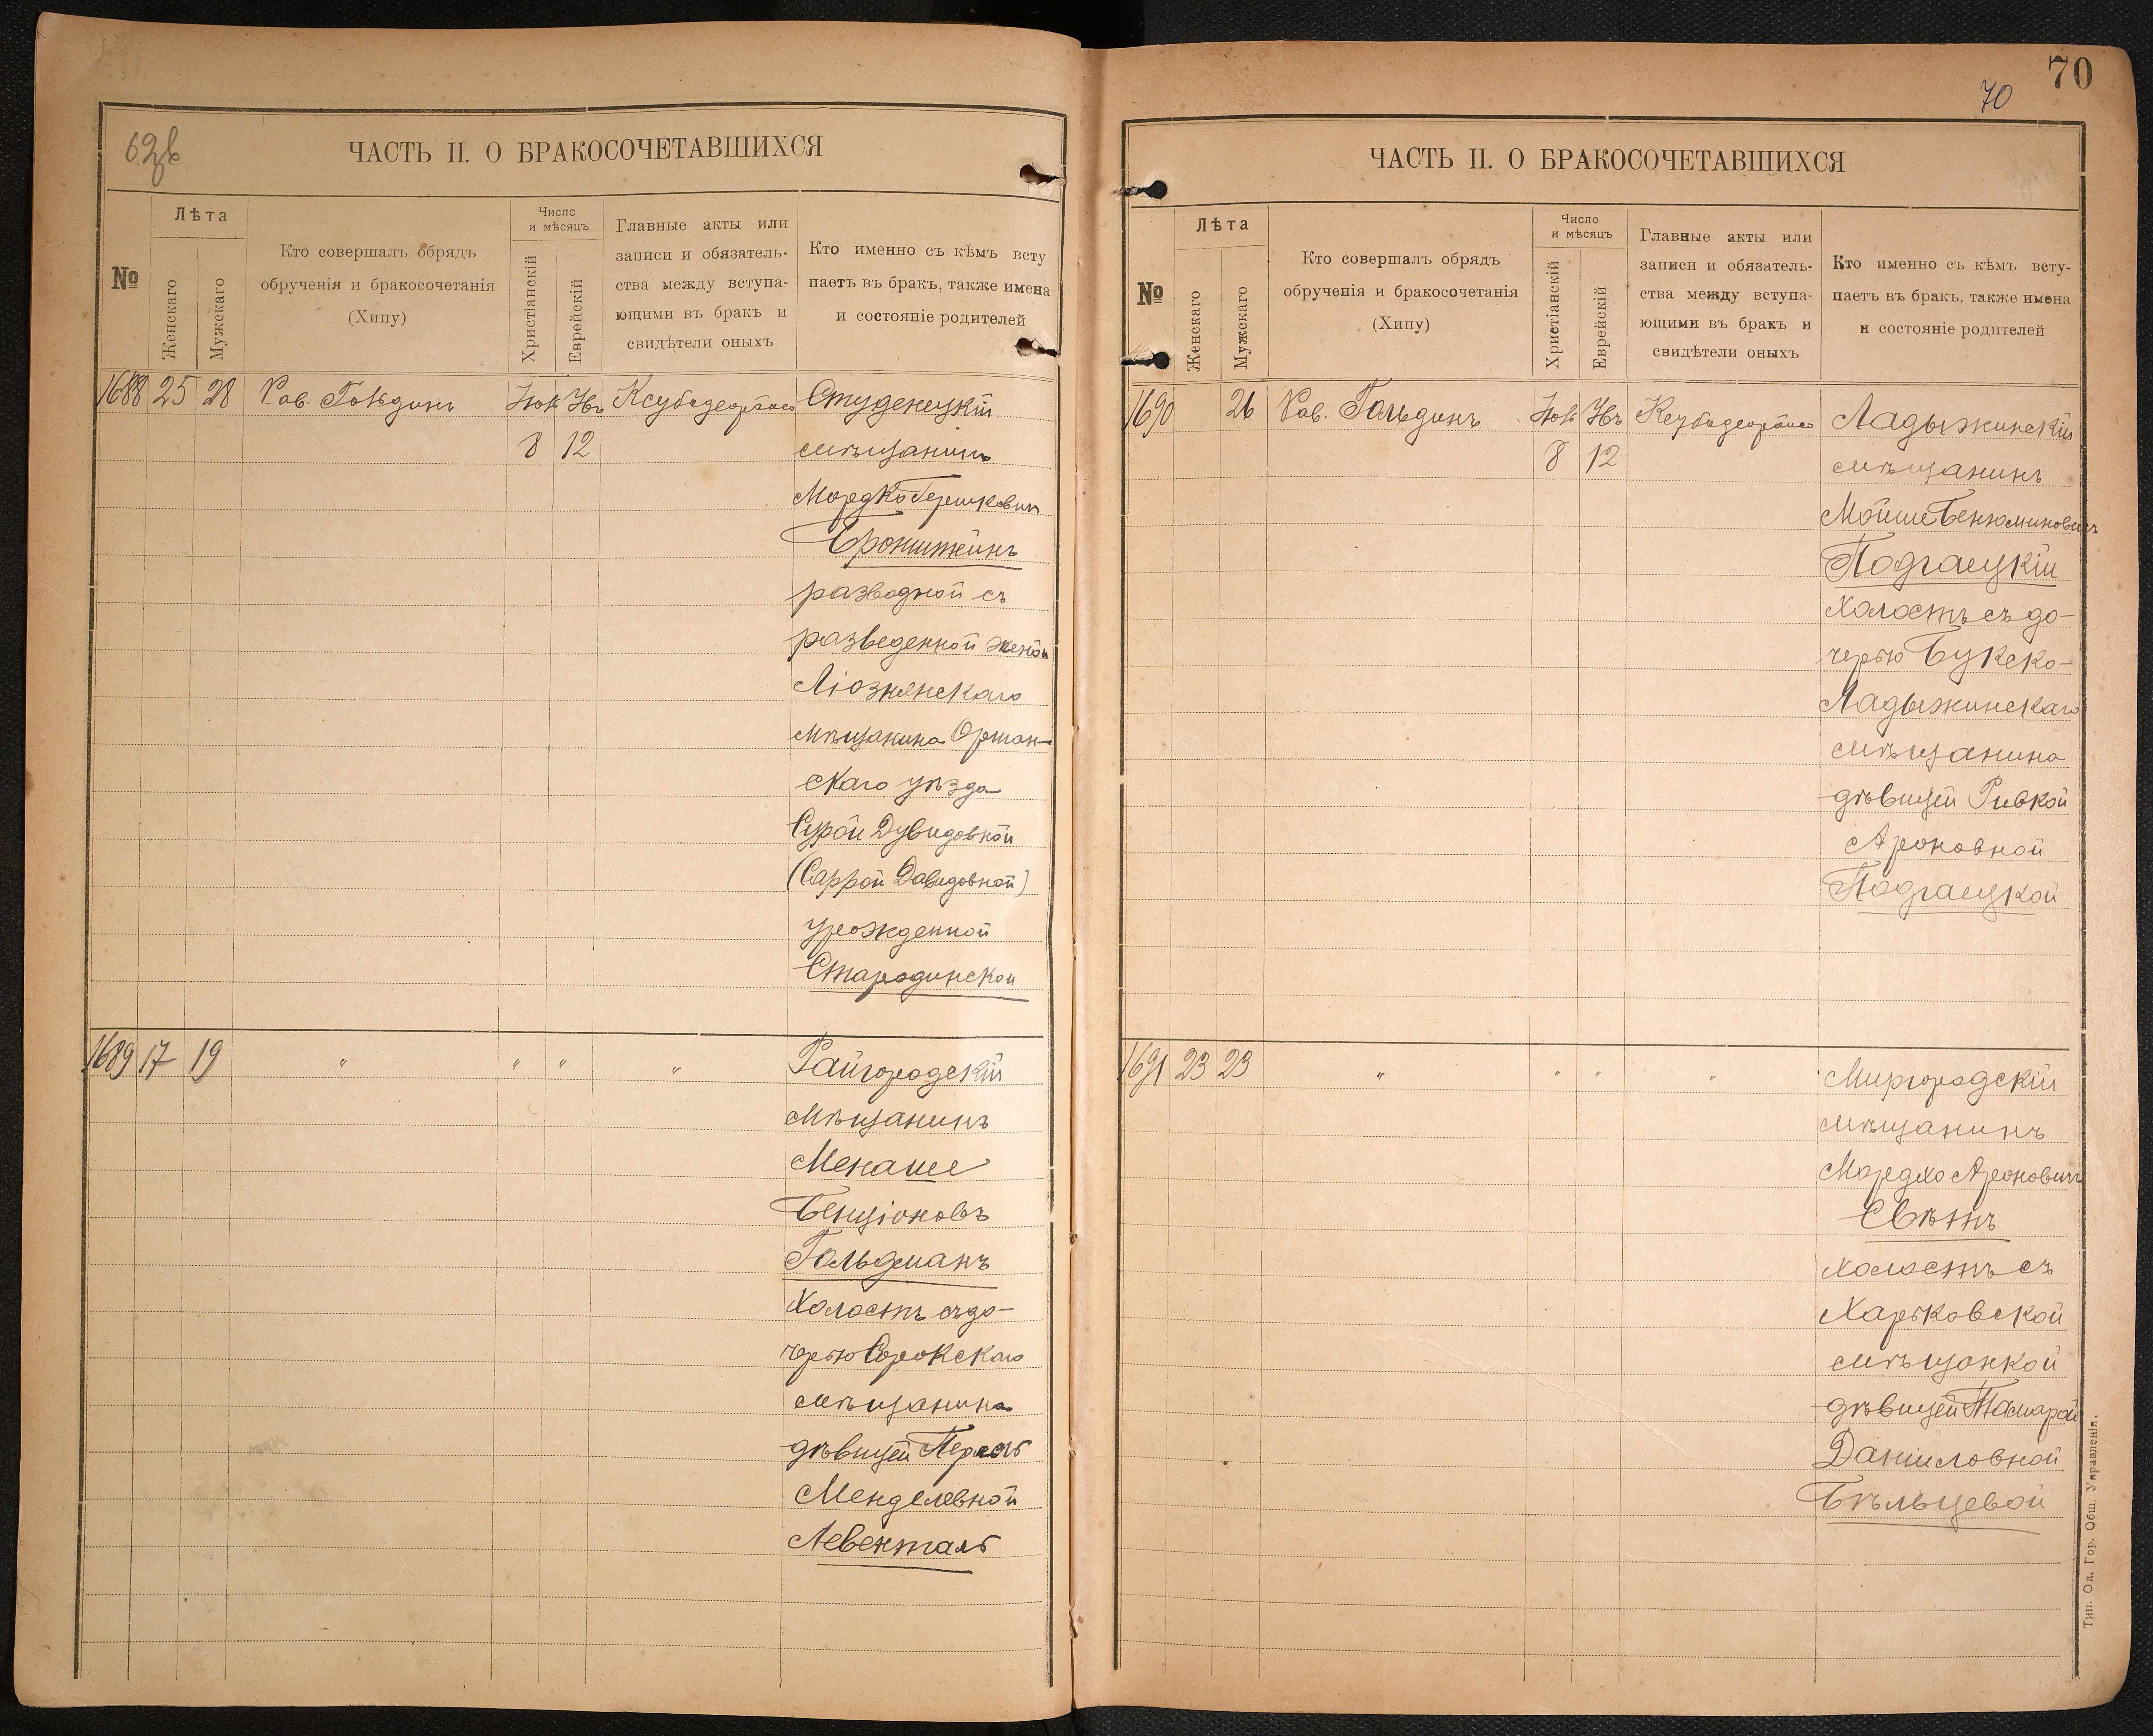 ЧАСТЬ II. О БРАКОСОЧЕТАВШИХСЯ
№
Лѣта
Женскаго
Мужскаго
Кто совершалъ обрядъ
обрученія и бракосочетанія
(Хипу)
Число
и мѣсяцъ
Христіанскій
Еврейскій
Главные акты или
записи и обязатель-
ства между вступа-
ющими въ бракъ и
свидѣтели оныхъ
Кто именно съ кѣмъ всту
паетъ въ бракъ, также имена
и состояніе родителей
1688 25 28 Рав. Гольдинъ Студенецкій
8 12 мѣщанинъ
Мордко Гершковичъ
Бронштейнъ
разводной съ
разведенной женой
Ліознянскаго
мѣщанина Оршан-
скаго уѣзда
Сурой Дувидовной
(Саррой Давидовной)
урожденной
Стародинской
1689 17 19 " " " " Райгородскій
мѣщанинъ
Менаше
Бенціоновъ
Гольдманъ
холостъ съ до-
черью Сорокскаго
мѣщанина
дѣвицей Перель
Менделевной
Левенталь
70
70
ЧАСТЬ II. О БРАКОСОЧЕТАВШИХСЯ
№
Лѣта
Женскаго
Мужскаго
Кто совершалъ обрядъ
обрученія и бракосочетанія
(Хипу)
Число
и мѣсяцъ
Христіанскій
Еврейскій
Главные акты или
записи и обязатель-
ства между вступа-
ющими въ бракъ и
свидѣтели оныхъ
Кто именно съ кѣмъ всту-
паетъ въ бракъ, также имена
и состояніе родителей
1690 26 Рав. Гольдинъ Ладыжинскій
8 12 мѣщанинъ
Мойше Бенюминовичъ
Подгаецкій
холостъ съ до-
черью Букско-
Ладыжинскаго
мѣщанина
дѣвицей Ривкой
Ароновной
Подгаецкой
1691 23 23 " " " " Миргородскій
мѣщанинъ
Мордхо Ароновичъ
Свѣтъ
холостъ съ
Харьковской
мѣщанкой
дѣвицей Тамарой
Даниловной
Бѣльцевой
Тип. Од. Гор. Общ. Управленія.